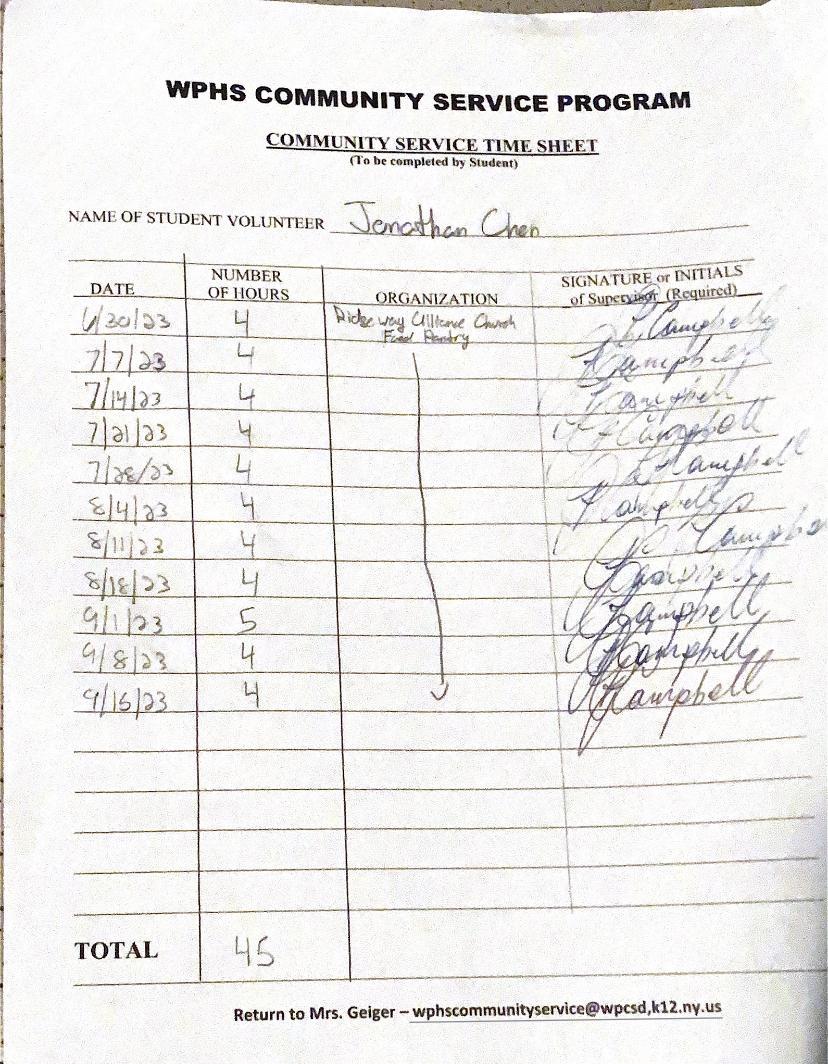 WPHS COMMUNITY SERVICE PROGRAM
COMMUNITY SERVICE TIME SHEET
(To be completed by Student)
NAME OF STUDENT VOLUNTEER Jonathan Chen
DATE NUMBER OF HOURS ORGANIZATION SIGNATURE or INITIALS of Supervisor (Required)
6/30/23 4 Ridgeway Alliance Church Food Pantry Campbell
7/7/23 4 Campbell
7/14/23 4 Campbell
7/21/23 4 Campbell
7/28/23 4 Campbell
8/4/23 4 Campbell
8/11/23 4 Campbell
8/18/23 4 Campbell
9/1/23 5 Campbell
9/8/23 4 Campbell
9/15/23 4 Campbell
TOTAL 45
Return to Mrs. Geiger – wphscommunityservice@wpcsd,k12.ny.us